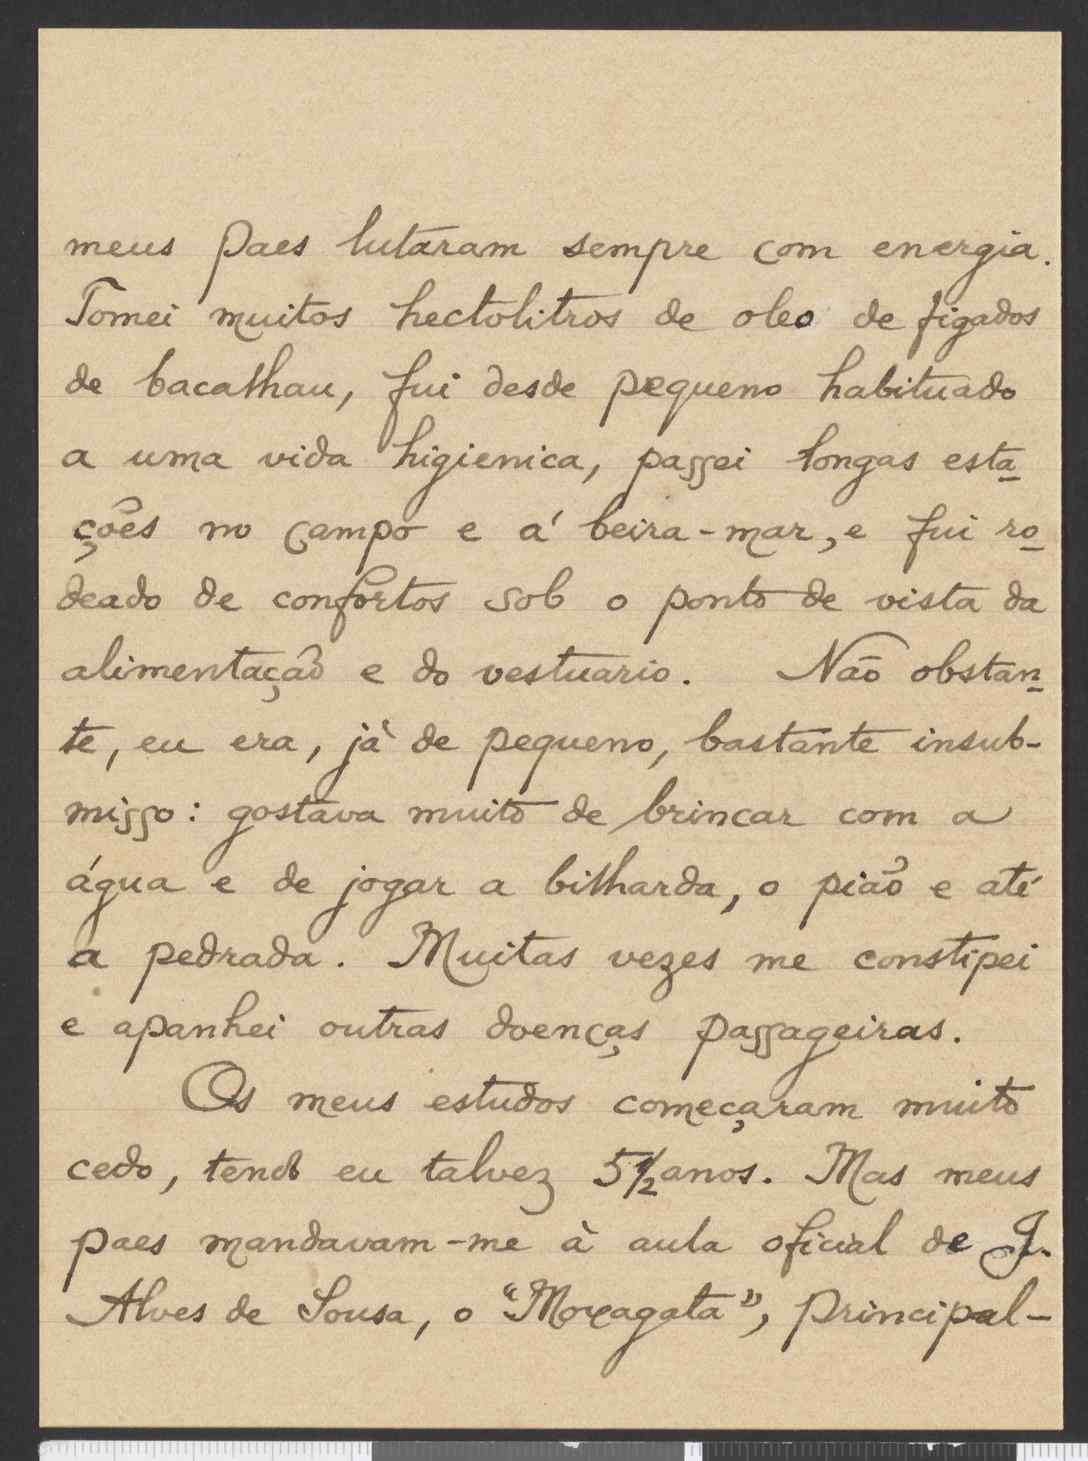 meus paes lutaram sempre com energia.
Tomei muitos hectolitros de oleo de figados
de bacalhau, fui desde pequeno habituado
a uma vida higienica, passei longas esta-
ções no campo e á beira-mar, e fui ro-
deado de confortos sob o ponto de vista da
alimentação e do vestuario. Não obstan-
te, eu era, já de pequeno, bastante insub-
misso: gostava muito de brincar com a
água e de jogar a bilharda, o pião e até
a pedrada. Muitas vezes me constipei
e apanhei outras doenças passageiras.
Os meus estudos começaram muito
cedo, tendo eu talvez 5 1/2 anos. Mas meus
paes mandavam-me à aula oficial de J.
Alves de Sousa, o "Moxagata", principal-